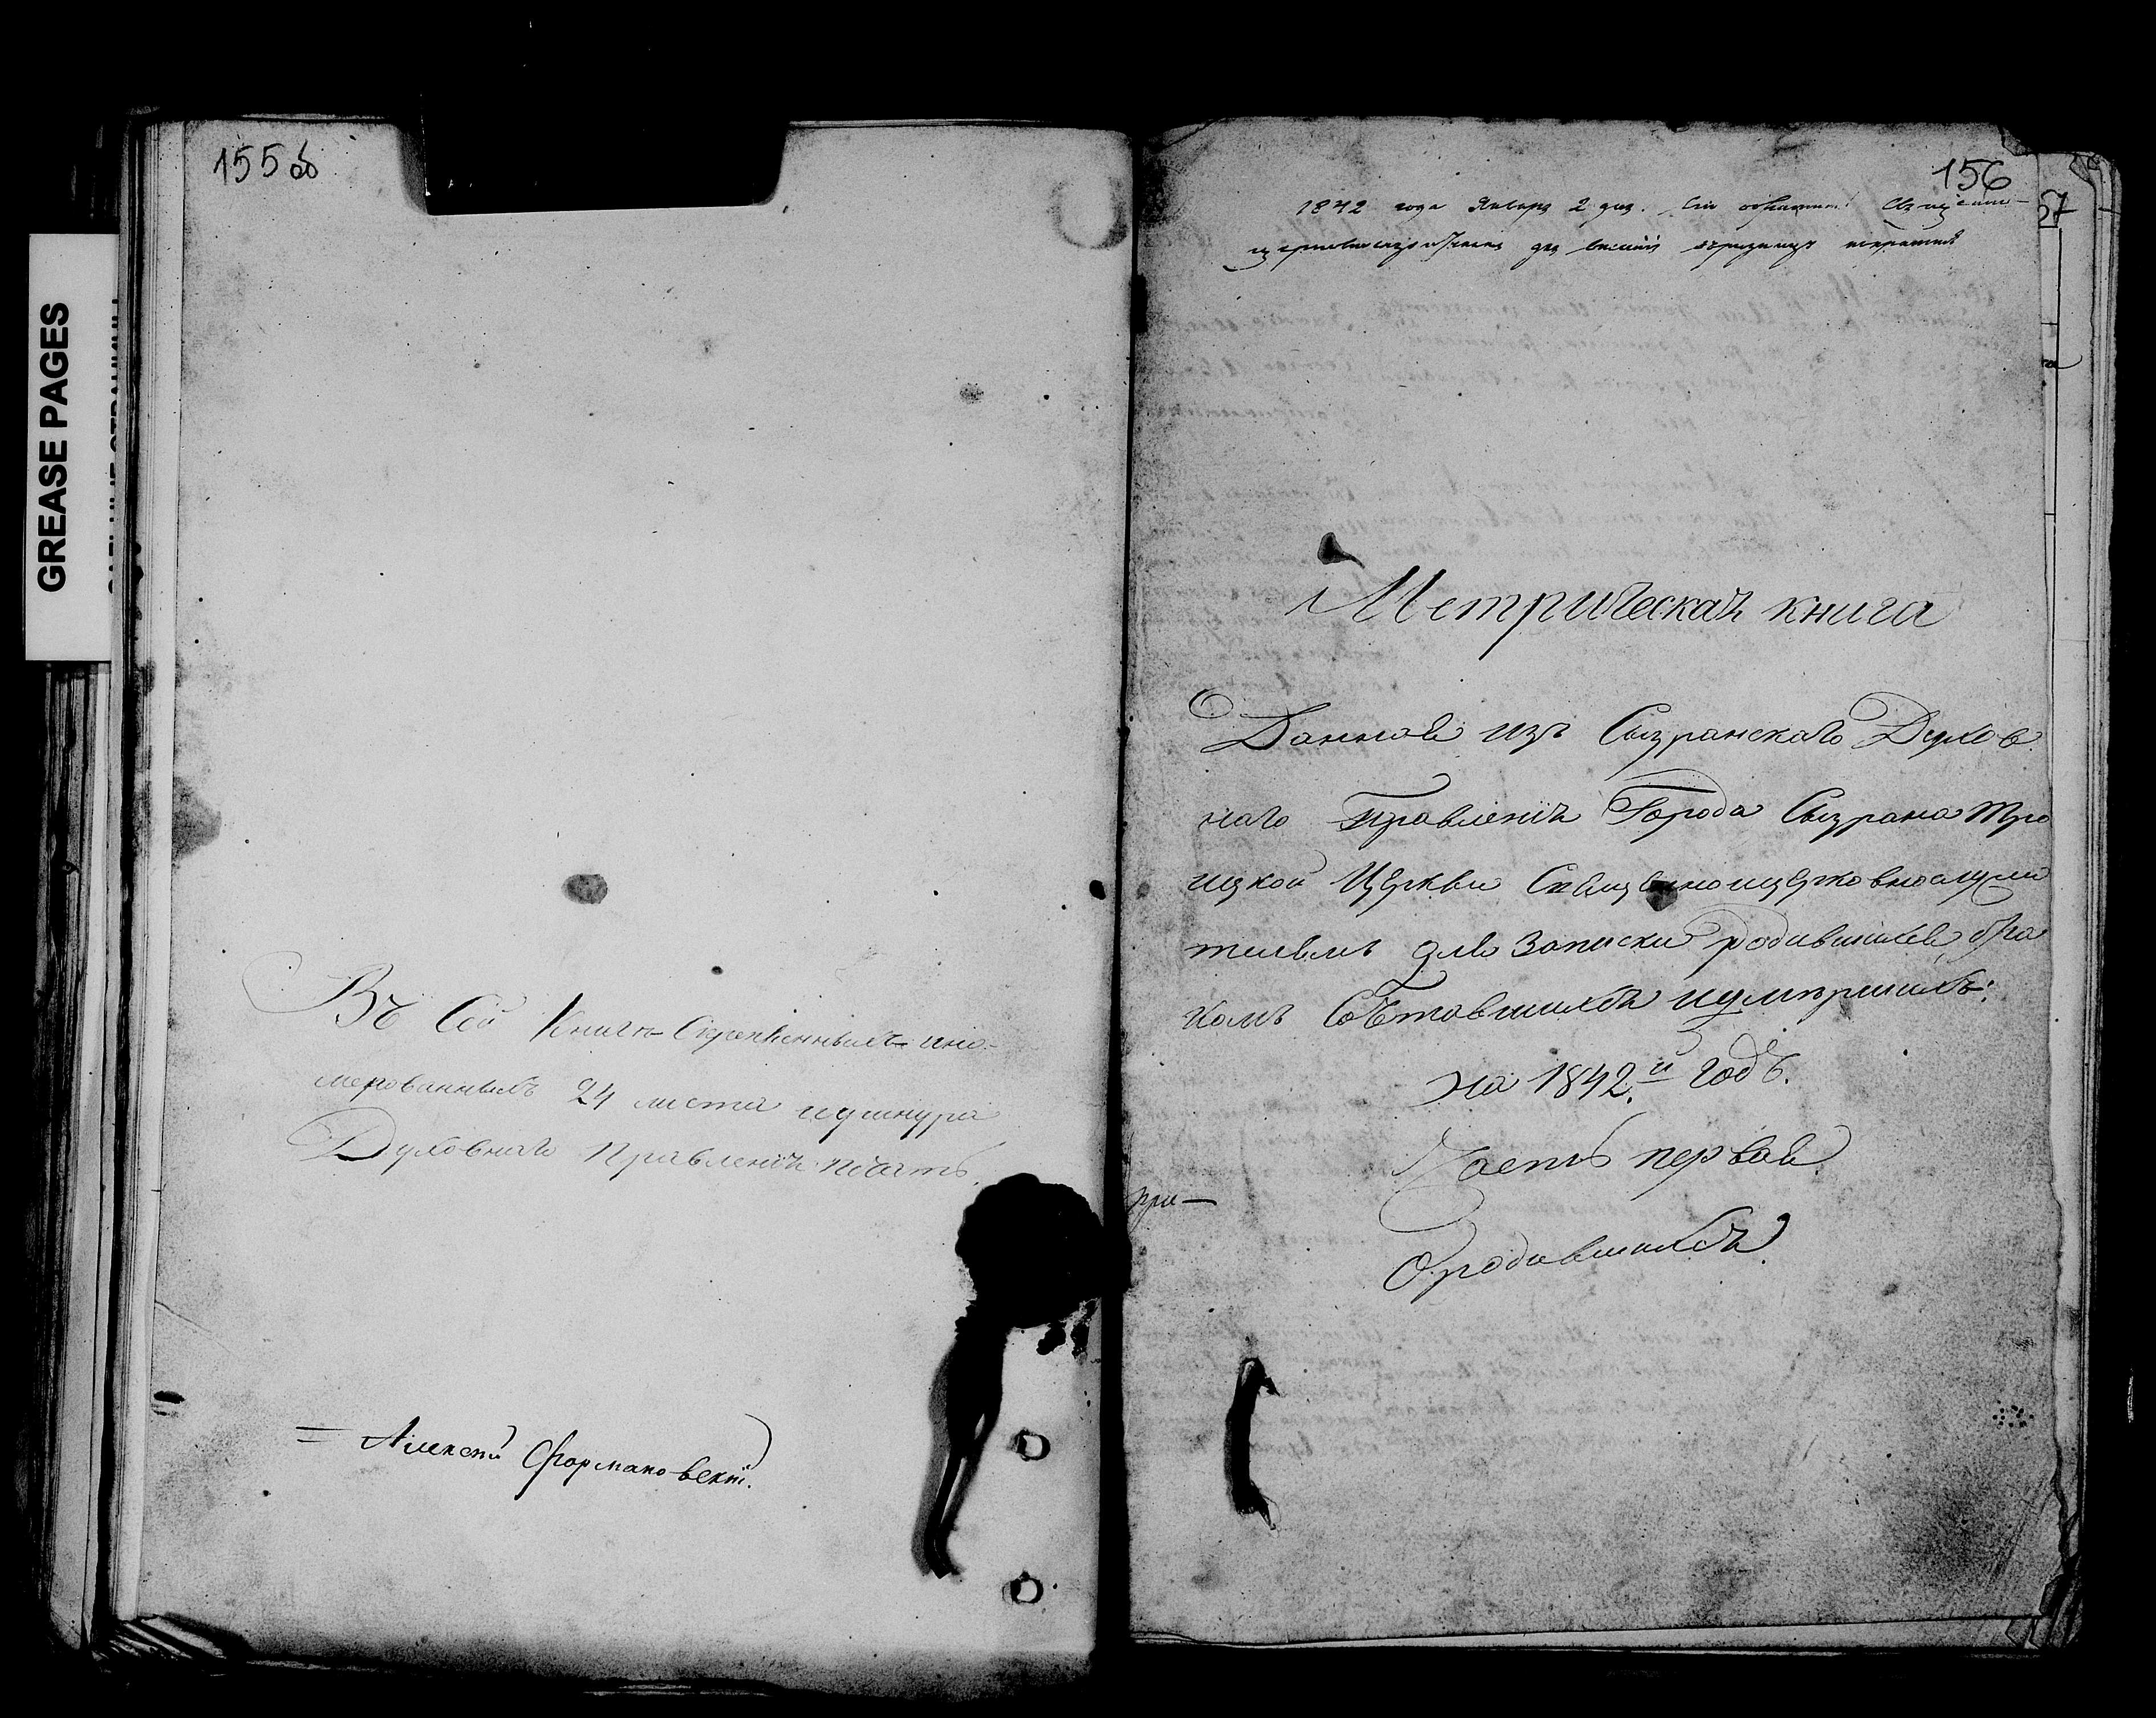 GREASE PAGES
155 об
Въ сей Книгѣ Скрепленныхъ ино-
мерованныхъ 24 листа ушнура
Духовнаго Правленія печать.
Алексѣй Формаковскій.
156
57
1842 года Января 2 дня. Сія
для
Метрическая книга
Данная изъ Сызранскаго Духов
наго Правленія Города Сызрана Тро
ицкой Церкви Священноцерковнослужи
телямъ для Записки родившихся, бра
комъ Сочетавшихся иумѣршихъ:
на 1842.й годъ.
Часть первая
Ородившихся.
при—